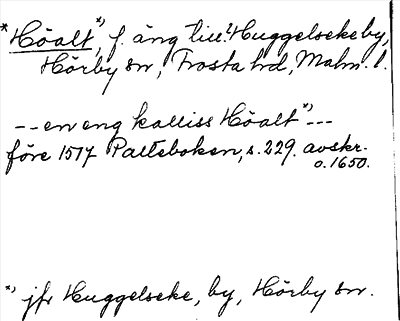 *Höalt*), f. äng till? Huggelseke by,
Hörby sn, Frosta hd, Malm. l.
-- en eng kalliss Höalt*) ---
före 1517 Palteboken, s. 229. avskr.
o. 1650.
*) jfr Huggelseke, by, Hörby sn.